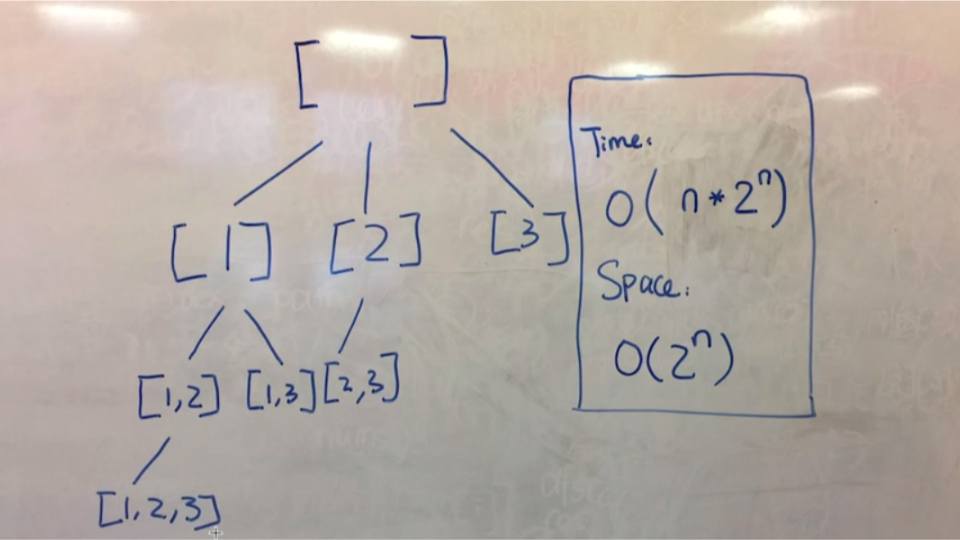 [ ]
[1] [2] [3]
[1,2] [1,3] [2,3]
[1,2,3]
Time:
O( n * 2ⁿ)
Space:
O(2ⁿ)